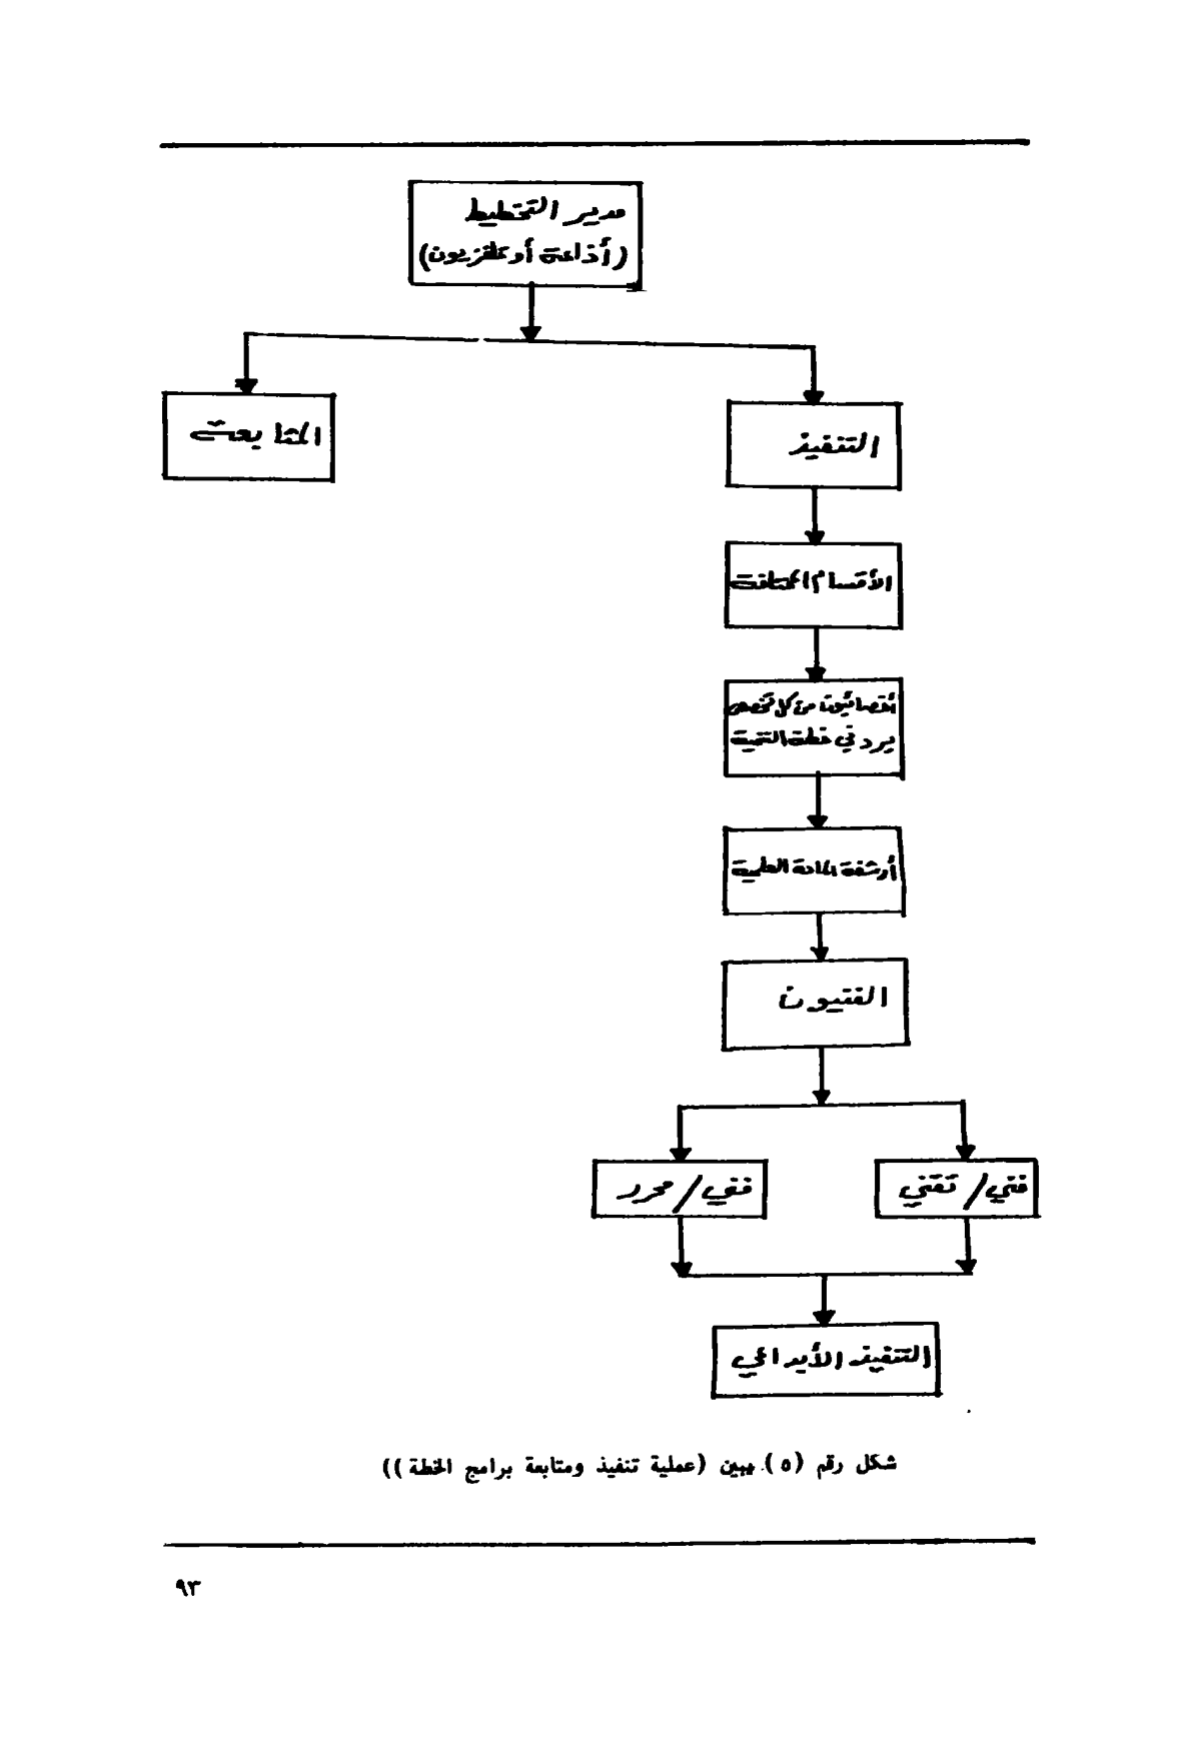 مدير التخطيط
(أذاعة أو تلفزيون)
المتابعة
التنفيذ
الأقسام المختلفة
أخصائيون من كل تخصص
يرد في خطة التنمية
أرشفة المادة العلمية
الفنيون
فني/تقني
فني/محرر
التنفيذ الأبداعي
شكل رقم (٥) يبين (عملية تنفيذ ومتابعة برامج الخطة))
٩٣